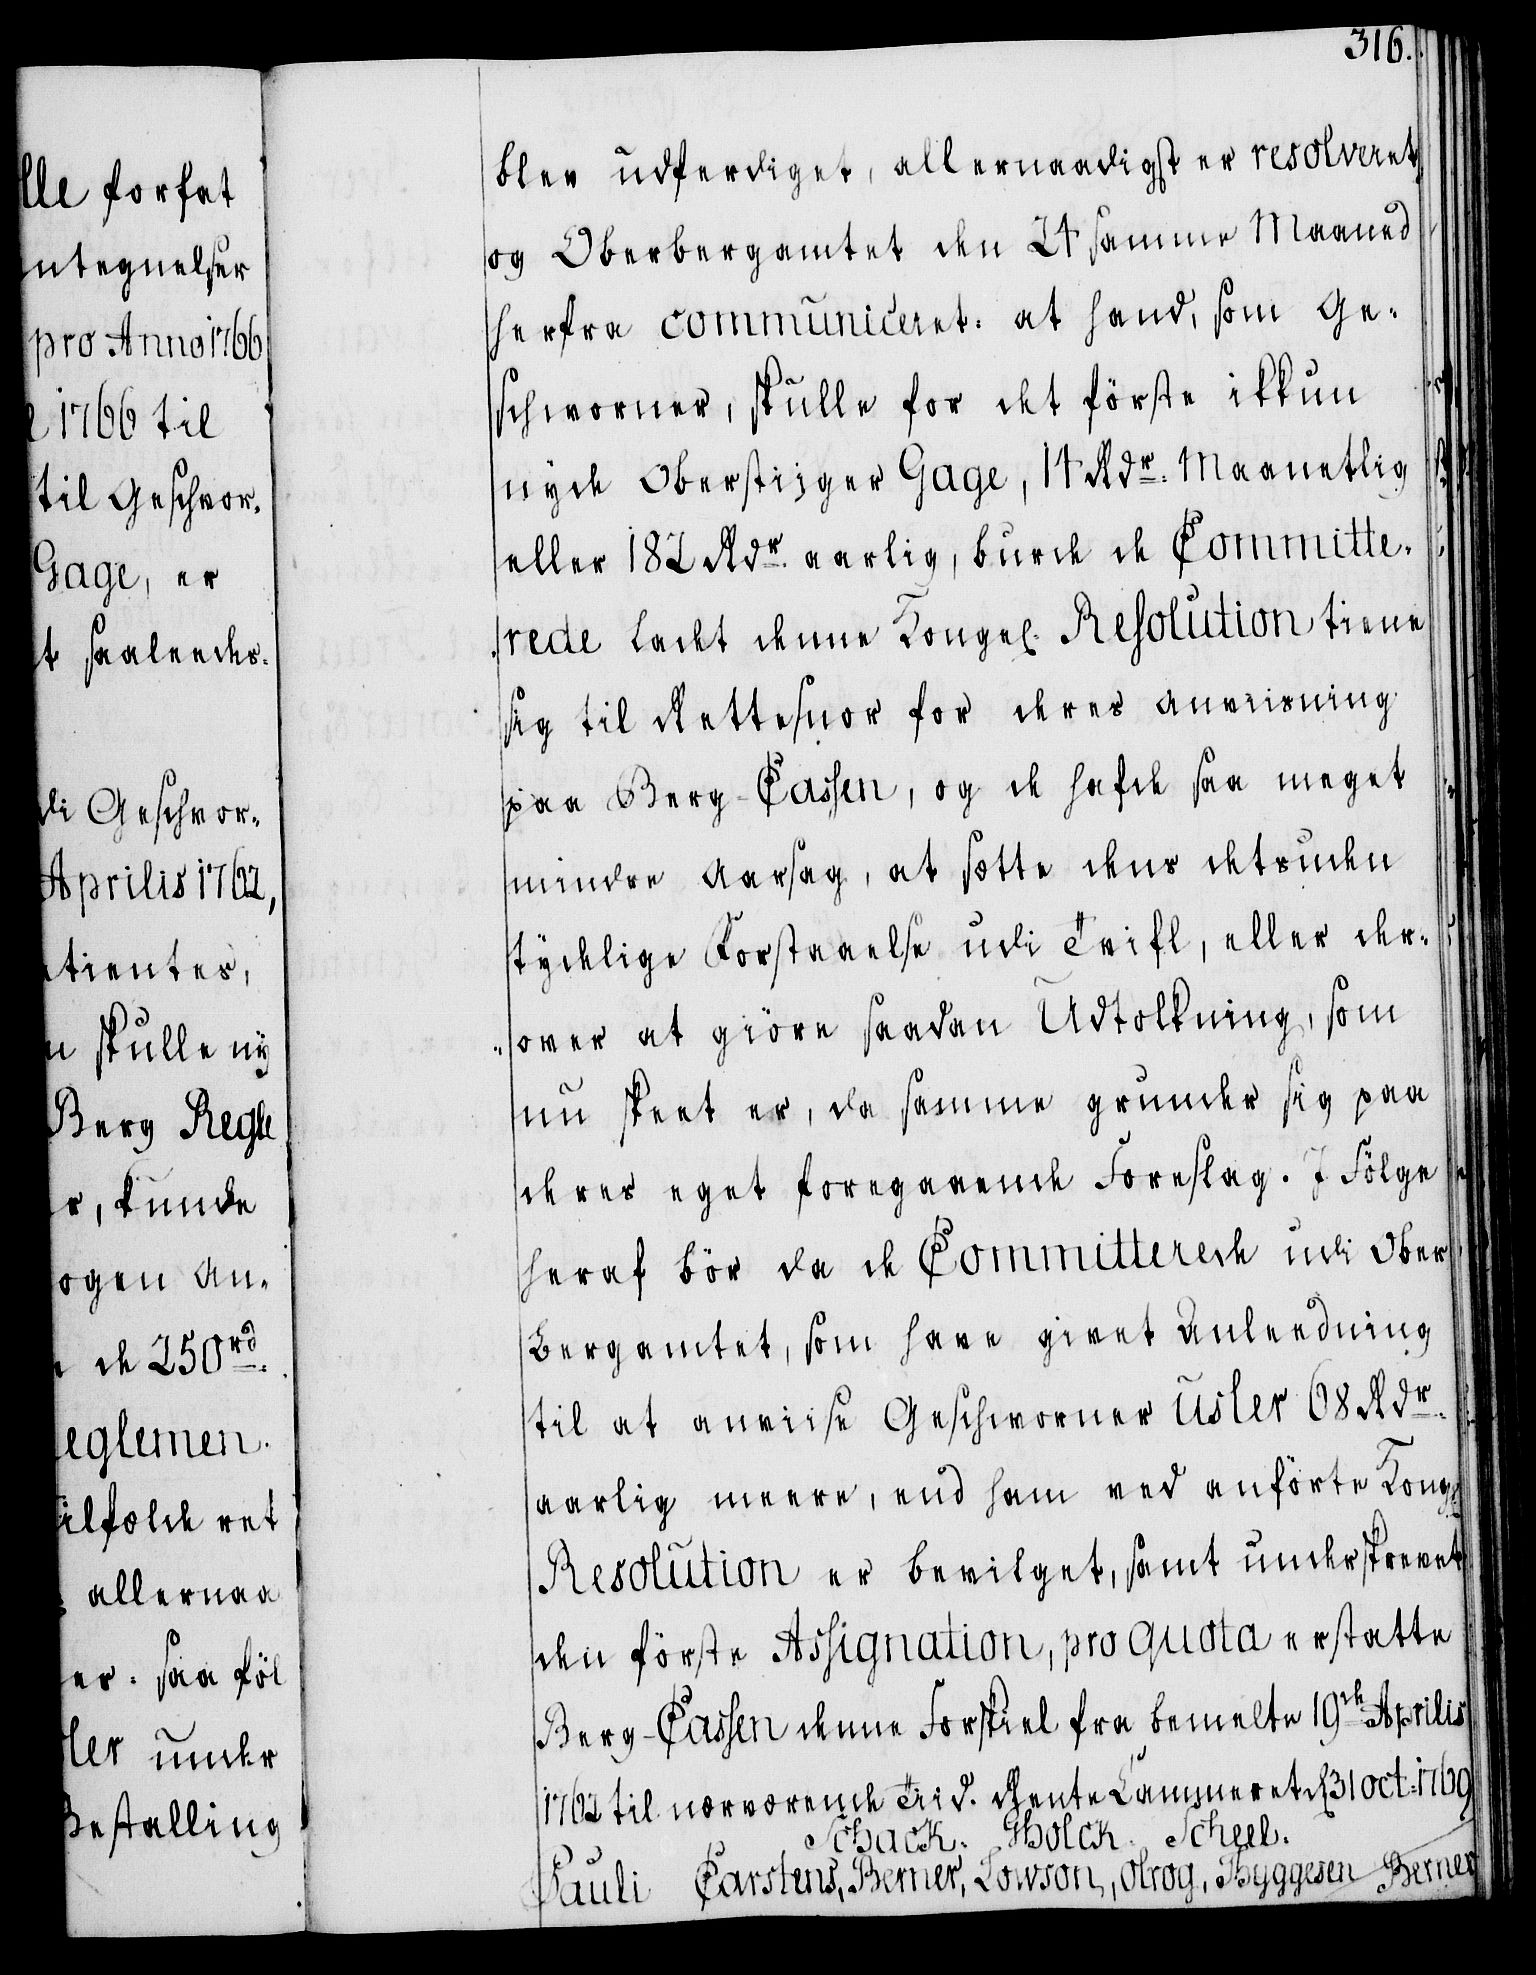 316.
lle forfat
ntegnelser
pro Anno 1766
1766 til
til Geschvor„
Gage, er
t saaleedes.
di Geschvor„
Aprilis 1762,
tientes,
n skulle ny
Berg Regle
r, kunde
ogen An„
de 250 rd.
eglemen„
ilfælde ret
allernaa
er. saa föl
ler under
Bestalling
blev udferdiget, allernaadigst er resolveret,
og Oberbergamtet den 24 samme Maaned
herfra communiceret: at hand, som Ge„
schworner, skulle for det förste ikkun
nyde Oberstiiger Gage, 14 Rdr. Maanetlig
eller 182 Rdr. aarlig, burde de Committe„
„rede ladet denne Kongel. Resolution tiene
sig til Rettesnor for deres Anviisning
paa Berg-Cassen, og de hafde saa meget
mindre Aarsag, at sætte dens desuden
tydelige Forstaaelse udi Tvifl, eller der„
„over at giöre saadan Udtolkning, som
nu skeet er, da samme grunder sig paa
deres eget foregaaende Forslag. I Fölge
heraf bör da de Committerede udi Ober
Bergamtet, som have givet Anleedning
til at anviise Geschworner Usler 68 Rdr.
aarlig meere, end ham ved anförte Kongl.
Resolution er bevilget, samt underskrevet
den förste Assignation, pro quota erstatte
Berg-Cassen denne Forskiel fra bemelte 19de Aprilis
1762 til nærværende Tiid. Rente Cammeret d. 31 Oct: 1769
Schack. GHolck. Scheel.
Pauli Carstens, Berner, Lowson, Olrog, Thyggesen Berner